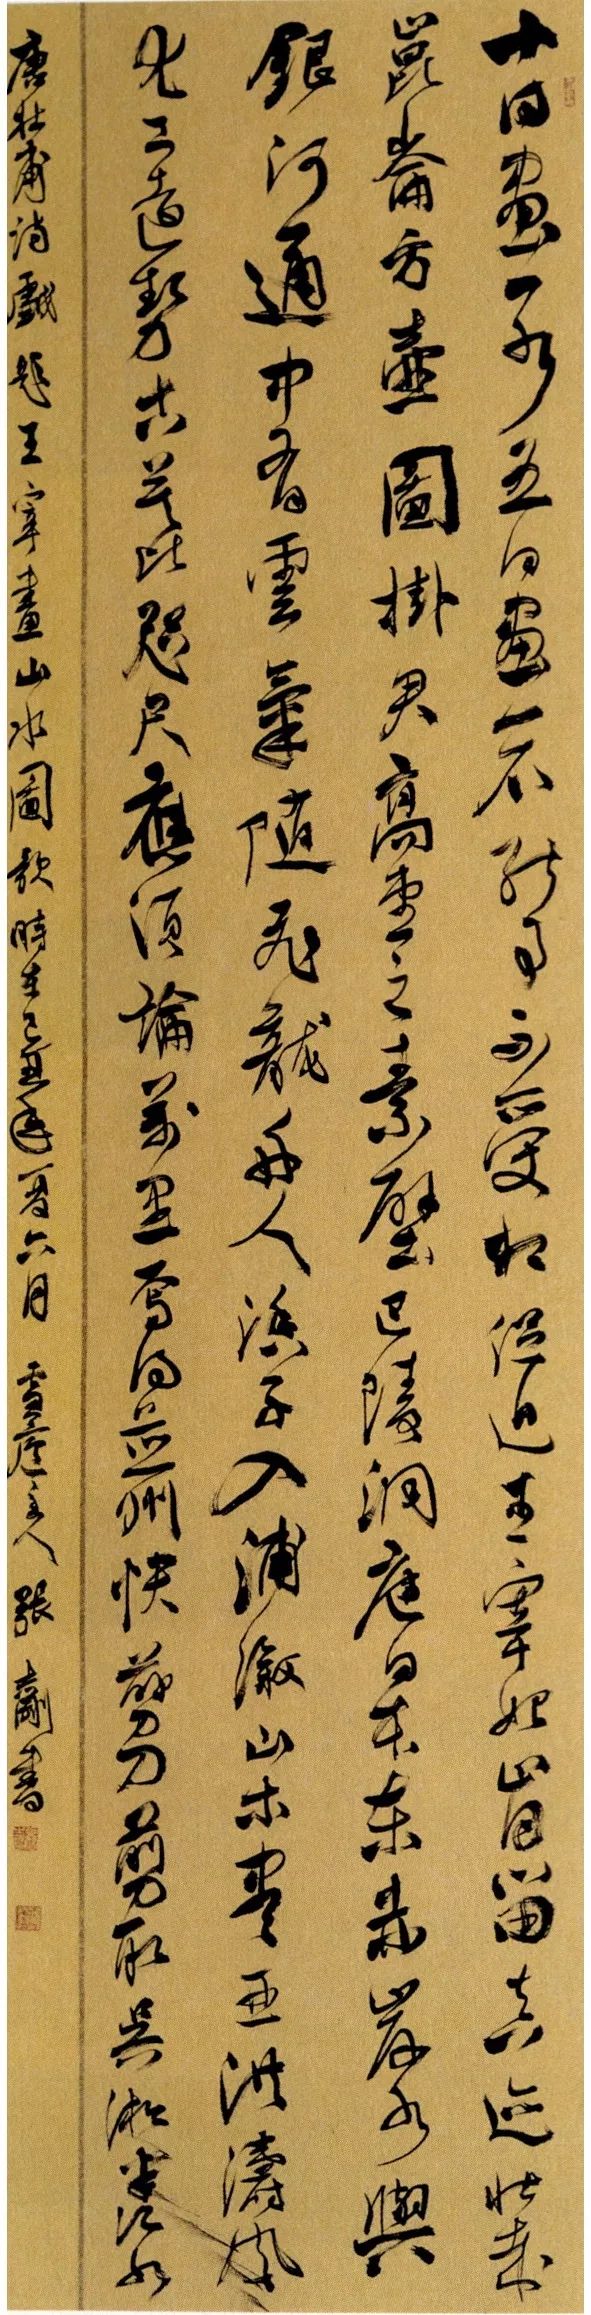 十日畫一水五日畫一石能事不受相促迫王宰始肯留真迹壯哉
崑崙方壺圖掛君高堂之素壁巴陵洞庭日本東赤岸水與
銀河通中有雲氣隨飛龍舟人漁子入浦漵山木盡亞洪濤風
尤工遠勢古莫比咫尺應須論萬里焉得并州快剪刀剪取吳淞半江水
唐杜甫詩戲題王宰畫山水圖歌時在己丑年夏六月 雪廬主人張剛書